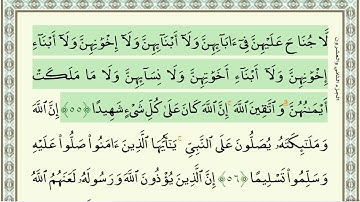 لَّا جُنَاحَ عَلَيْهِنَّ فِيٓ ءَابَآئِهِنَّ وَلَآ أَبْنَآئِهِنَّ وَلَآ إِخْوَٰنِهِنَّ وَلَآ أَبْنَآءِ
إِخْوَٰنِهِنَّ وَلَآ أَبْنَآءِ أَخَوَٰتِهِنَّ وَلَا نِسَآئِهِنَّ وَلَا مَا مَلَكَتْ
أَيْمَٰنُهُنَّ ۗ وَٱتَّقِينَ ٱللَّهَ ۚ إِنَّ ٱللَّهَ كَانَ عَلَىٰ كُلِّ شَىْءٍ شَهِيدًا ﴿٥٥﴾ إِنَّ ٱللَّهَ
وَمَلَٰٓئِكَتَهُۥ يُصَلُّونَ عَلَى ٱلنَّبِيِّ ۚ يَٰٓأَيُّهَا ٱلَّذِينَ ءَامَنُوا۟ صَلُّوا۟ عَلَيْهِ
وَسَلِّمُوا۟ تَسْلِيمًا ﴿٥٦﴾ إِنَّ ٱلَّذِينَ يُؤْذُونَ ٱللَّهَ وَرَسُولَهُۥ لَعَنَهُمُ ٱللَّهُ